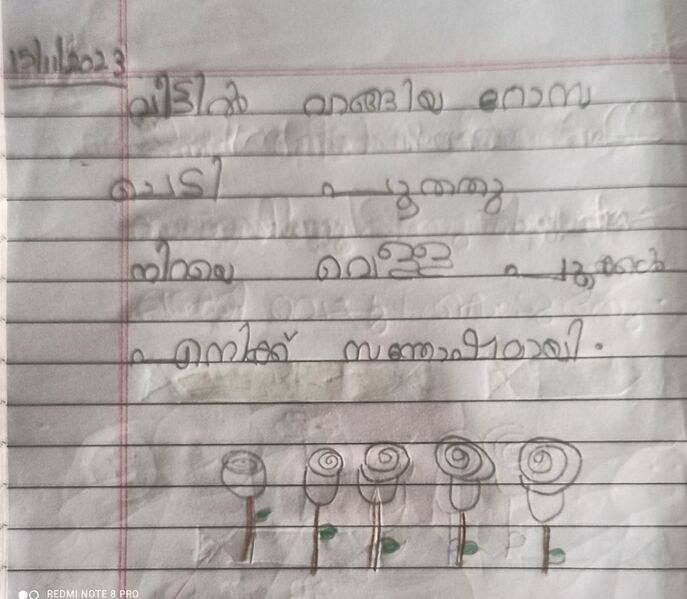 15/11/2023
വീട്ടിൽ വാങ്ങിയ റോസ
ചെടി പൂത്തു
നിറയെ വെള്ള പൂക്കൾ
എനിക്ക് സന്തോഷമായി.
REDMI NOTE 8 PRO